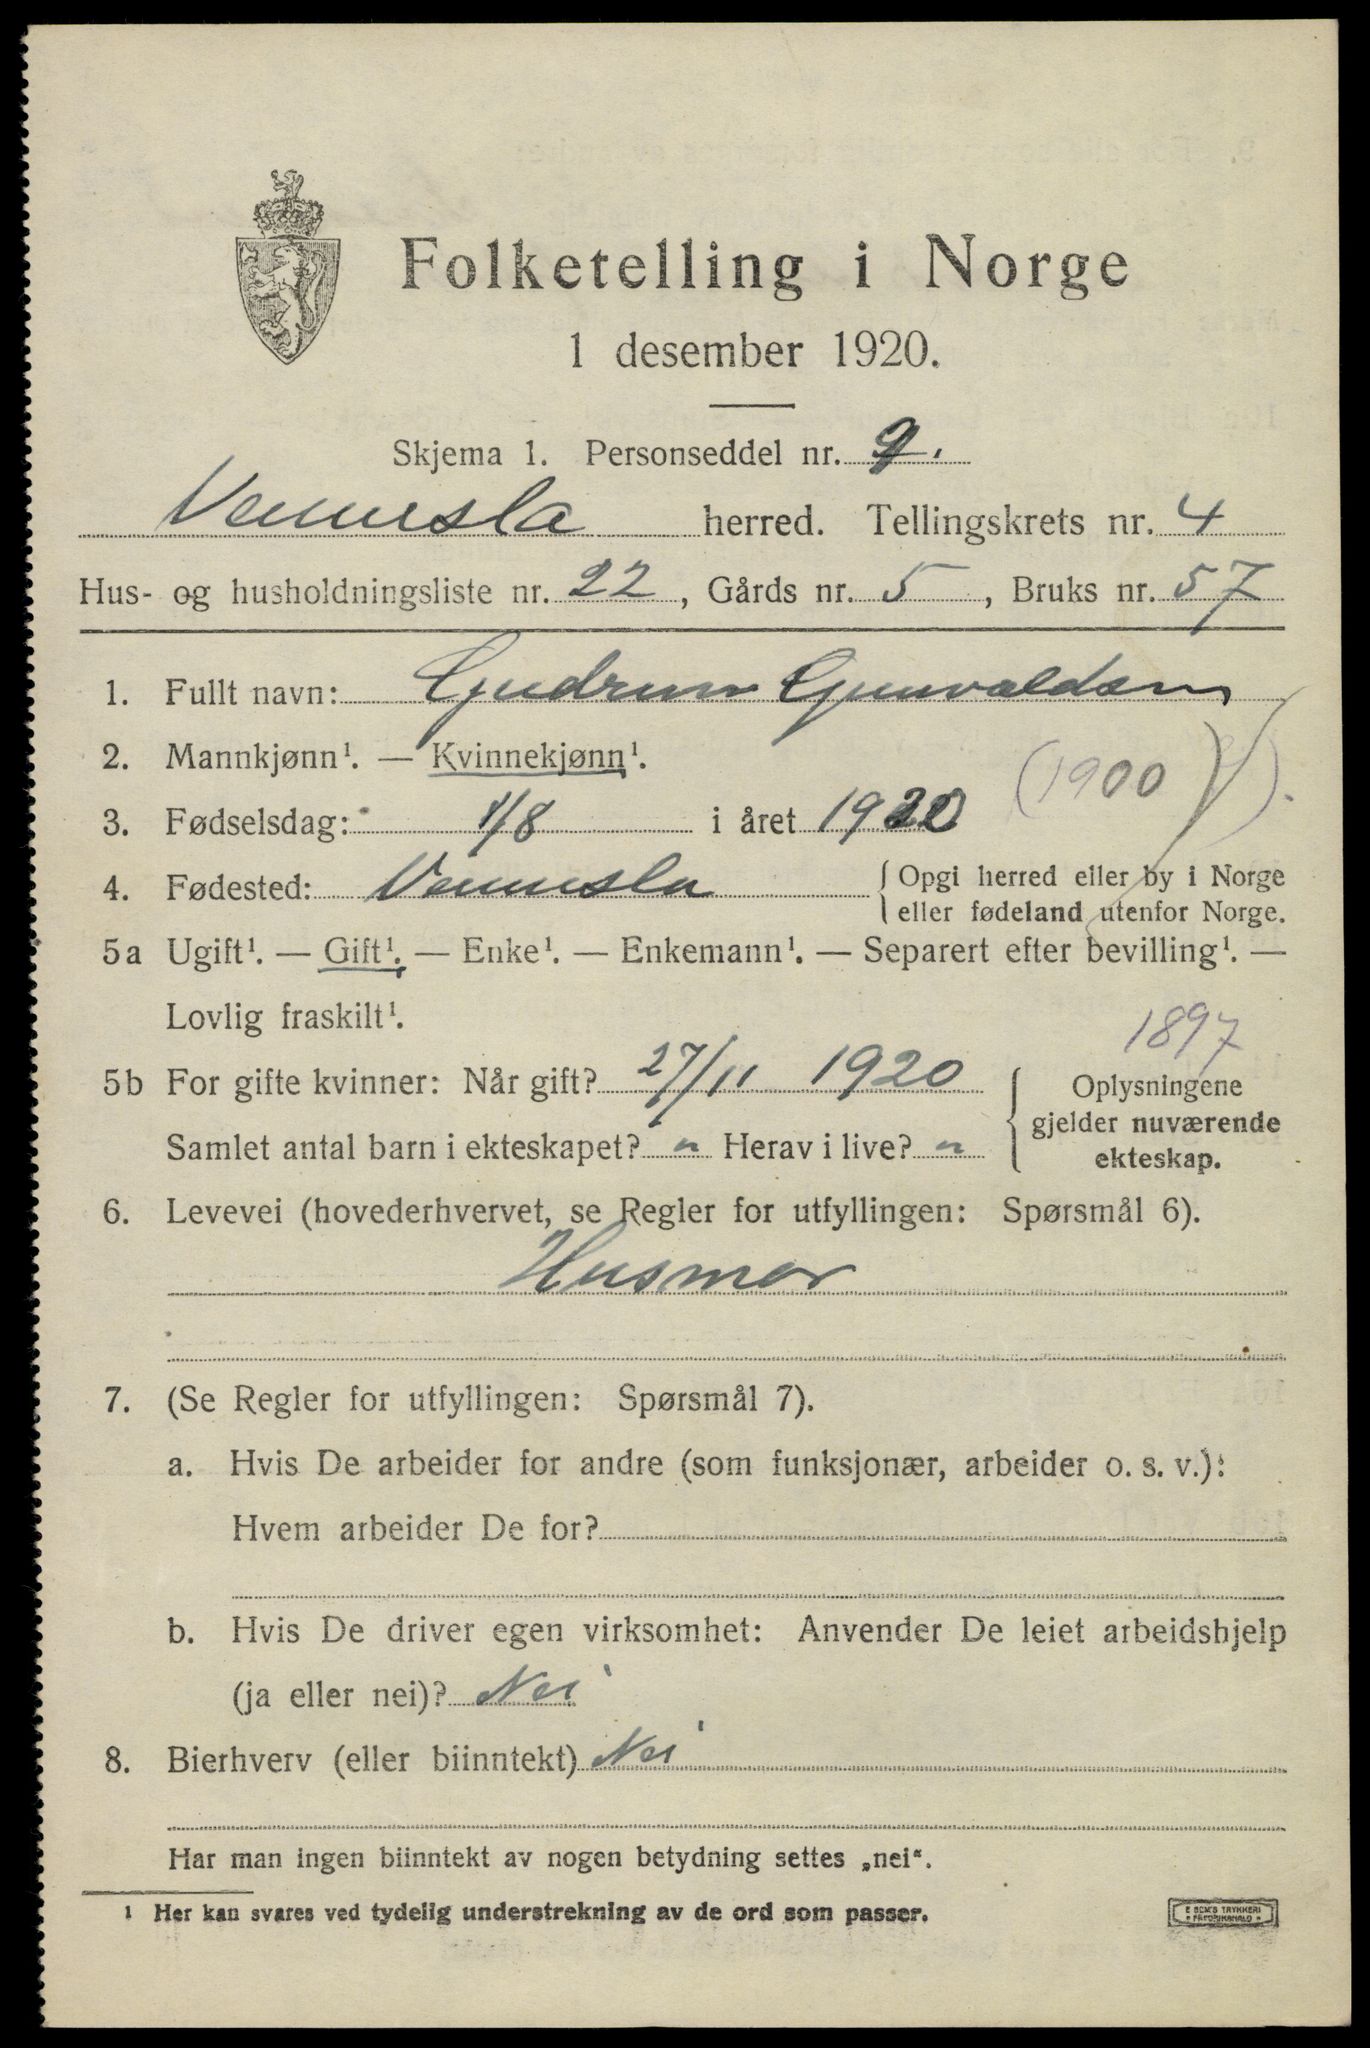 Folketelling i Norge
1 desember 1920.
Skjema 1. Personseddel nr. 9.
Vennesla herred. Tellingskrets nr. 4
Hus- og husholdningsliste nr. 22, Gårds nr. 5, Bruks nr. 57
1. Fullt navn: Gudrun Gunvaldsen
2. Mannkjønn¹. — Kvinnekjønn¹.
(1900)
3. Fødselsdag: 1/8 i året 1920
4. Fødested: Vennesla { Opgi herred eller by i Norge
eller fødeland utenfor Norge.
5a Ugift¹. — Gift¹. — Enke¹. — Enkemann¹. — Separert efter bevilling¹. —
Lovlig fraskilt¹.
1897
5b For gifte kvinner: Når gift? 27/11 1920 { Oplysningene
gjelder nuværende
Samlet antal barn i ekteskapet? " Herav i live? "
ekteskap.
6. Levevei (hovederhvervet, se Regler for utfyllingen: Spørsmål 6).
Husmor
7. (Se Regler for utfyllingen: Spørsmål 7).
a. Hvis De arbeider for andre (som funksjonær, arbeider o. s. v.):
Hvem arbeider De for?
b. Hvis De driver egen virksomhet: Anvender De leiet arbeidshjelp
(ja eller nei)? Nei
8. Bierhverv (eller biinntekt) Nei
Har man ingen biinntekt av nogen betydning settes „nei“.
1 Her kan svares ved tydelig understrekning av de ord som passer.
E SEM'S TRYKKERI
FREDRIKSHALD